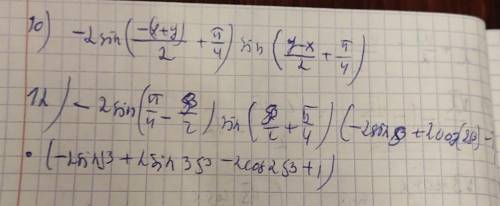 10) -2sin(-(x+y)/2 + π/4) sin(y-x/2 + π/4)
12) - 2sin(π/4 - β/2) sin(β/2 + π/4) (-2sinβ + 2cos(2β) -
• (-2sinβ + 2sin3β - 2cos2β + 1)